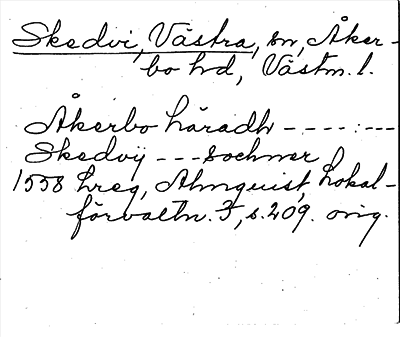 Skedvi, Västra, sn, Åker-
bo hd, Västm. l.
Åkerbo häradh - - - - : - - -
Skedvij - - - Sochner
1558 hreg, Almquist, Lokal-
förvaltn. 3, s. 209. orig.